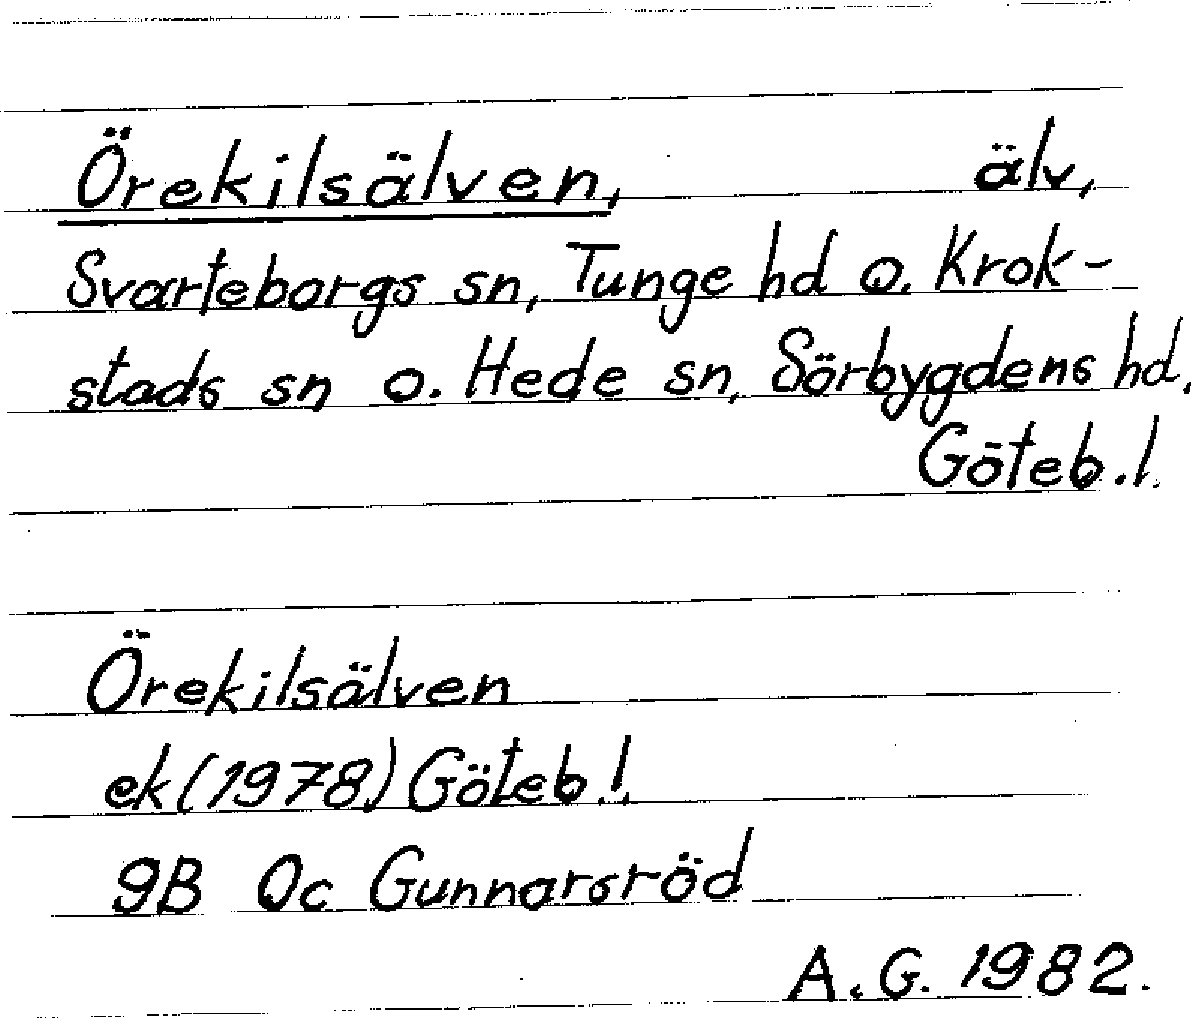 Örekilsälven, älv,
Svarteborgs sn, Tunge hd o. Krok-
stads sn o. Hede sn, Sörbygdens hd,
Göteb.l.
Örekilsälven
ek(1978) Göteb.l.
9B 0c Gunnarsröd
A.G. 1982.